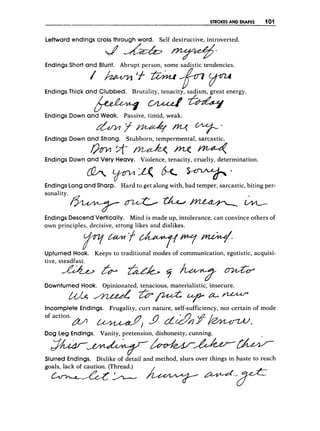 STROKES AND SHAPES 101
Leftward endings cross through word. Self destructive, introverted.
I hate myself.
Endings Short and Blunt. Abrupt person, some sadistic tendencies.
I haven't time for you
Endings Thick and Clubbed. Brutality, tenacity, sadism, great energy.
feeling cruel today
Endings Down and Weak. Passive, timid, weak.
don't make me cry.
Endings Down and Strong. Stubborn, tempermental, sarcastic.
Don't make me mad
Endings Down and Very Heavy. Violence, tenacity, cruelty, determination.
Or you'll be sorry.
Endings Long and Sharp. Hard to get along with, bad temper, sarcastic, biting per-
sonality.
Bring out the mean in
Endings Descend Vertically. Mind is made up, intolerance, can convince others of
own principles, decisive, strong likes and dislikes.
you can't change my mind.
Upturned Hook. Keeps to traditional modes of communication, egotistic, acquisi-
tive, steadfast.
Like to take & hang onto
Downturned Hook. Opinionated, tenacious, materialistic, insecure.
We need to put up a new
Incomplete Endings. Frugality, curt nature, self-sufficiency, not certain of mode
of action.
as usual, I didn't know.
Dog Leg Endings. Vanity, pretension, dishonesty, cunning.
This ending looks like this
Slurred Endings. Dislike of detail and method, slurs over things in haste to reach
goals, lack of caution. (Thread.)
Come let's hurry and get